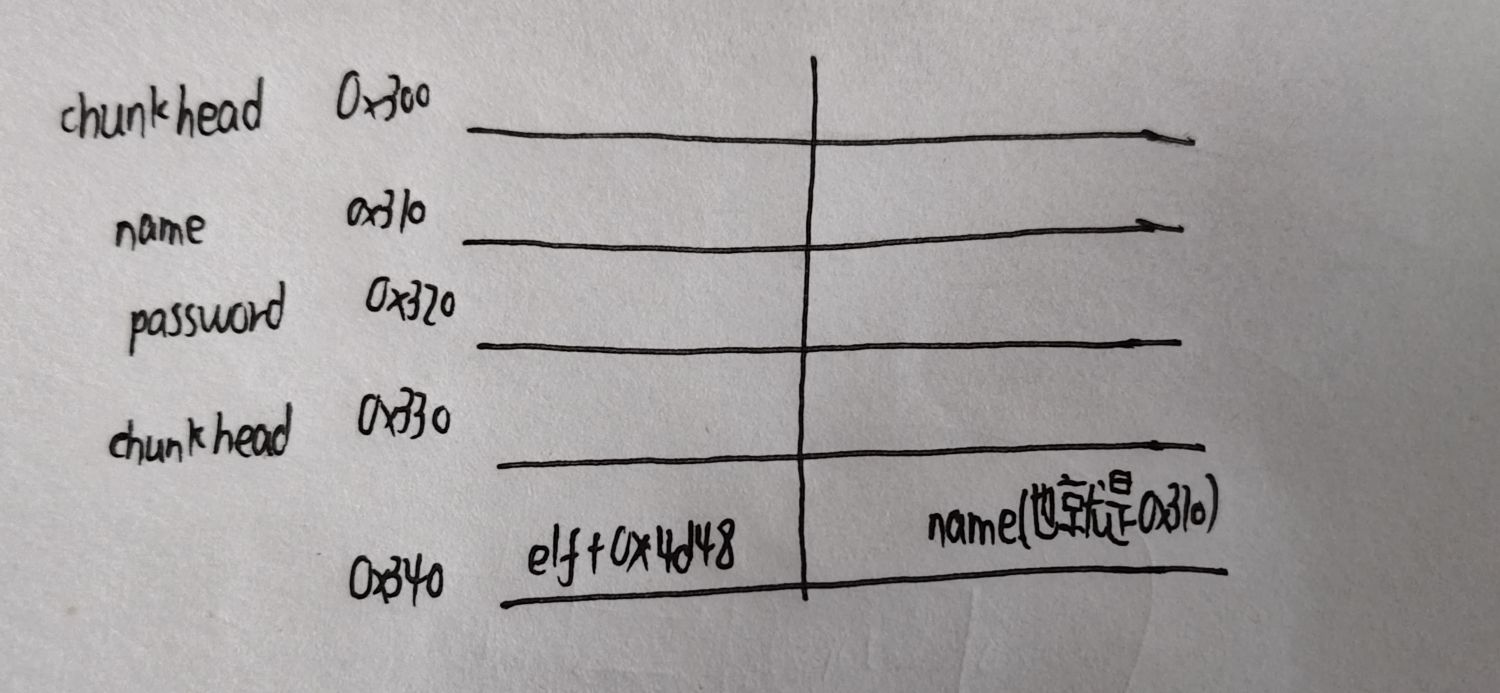 chunkhead 0x300
name 0x310
password 0x320
chunkhead 0x330
0x340 elf+0x4d48 name(也就是0x310)